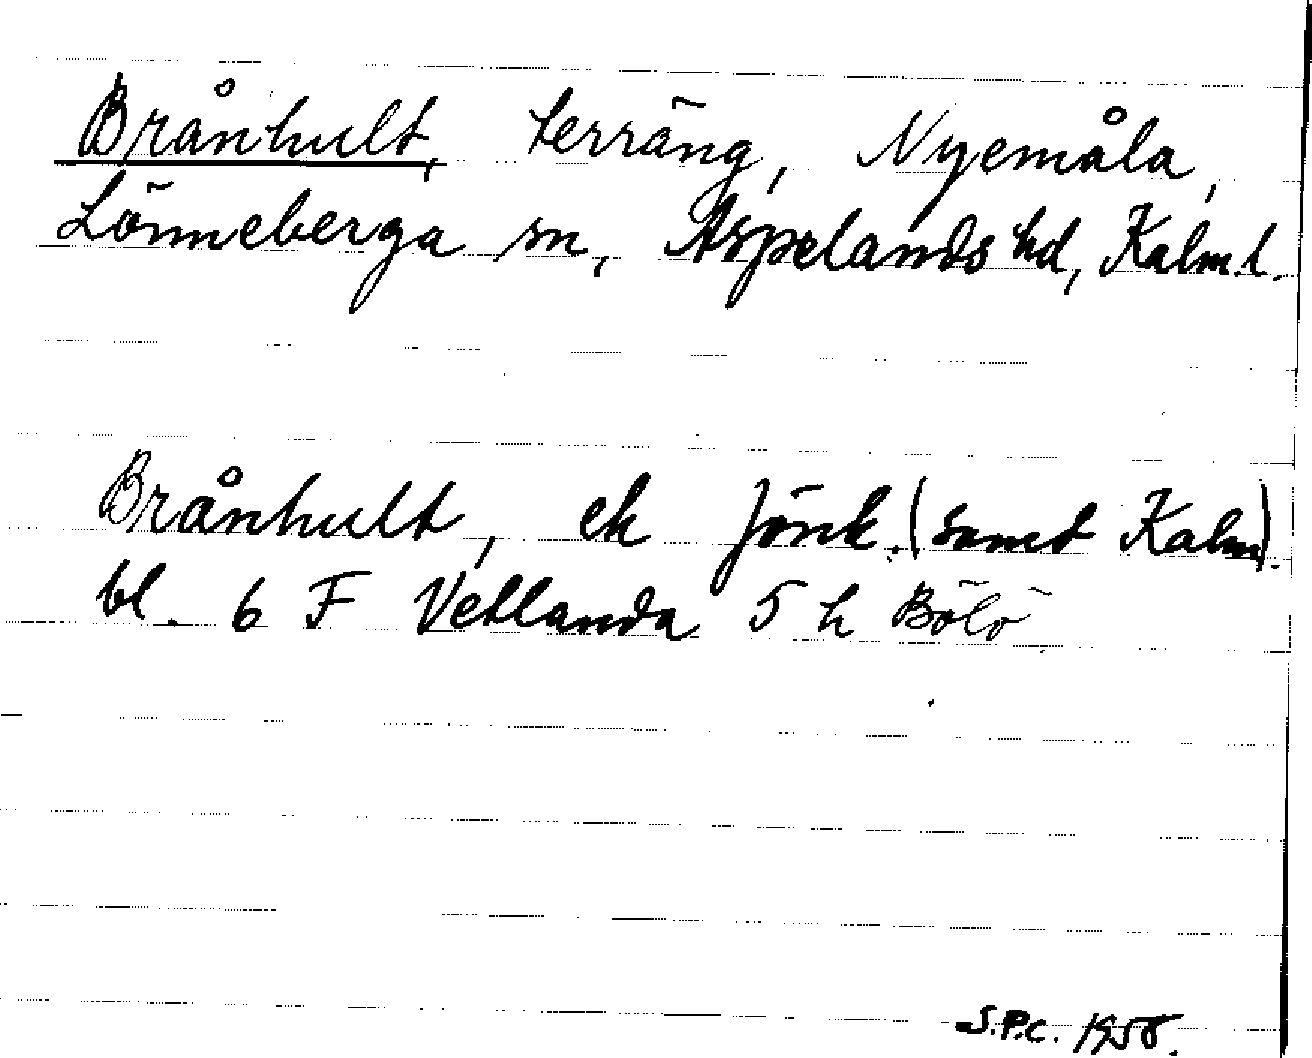 Brånhult, terräng, Nyemåla,
Lönneberga sn, Aspelands hd, Kalm. l.
Brånhult, ek Jönk. (samt Kalm).
bl. 6 F Vetlanda 5 h Bölö
S.P.C. 1958.